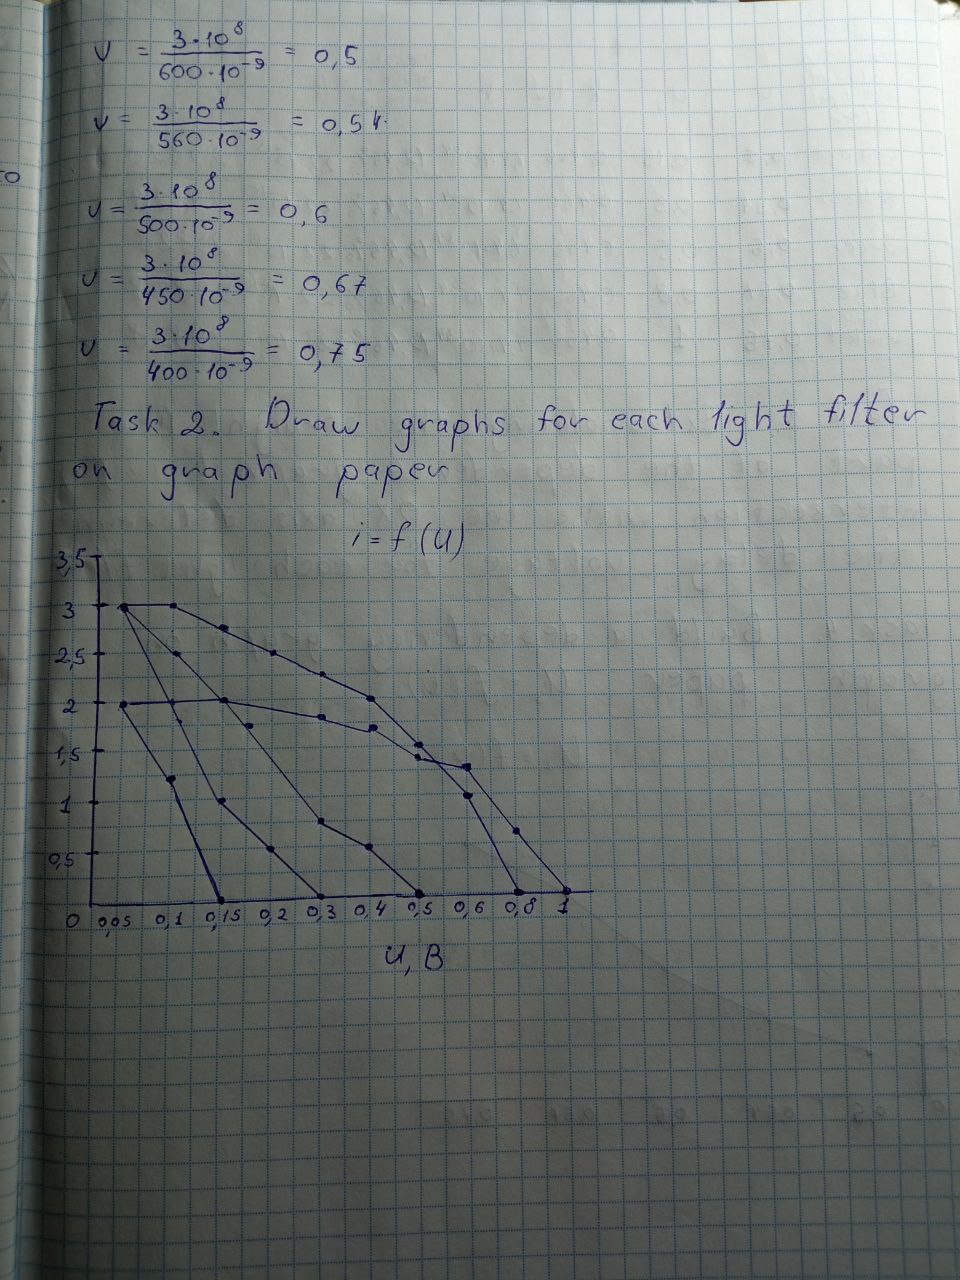 ν = 3·10⁸ / 600·10⁻⁹ = 0,5
ν = 3·10⁸ / 560·10⁻⁹ = 0,54
ν = 3·10⁸ / 500·10⁻⁹ = 0,6
ν = 3·10⁸ / 450·10⁻⁹ = 0,67
ν = 3·10⁸ / 400·10⁻⁹ = 0,75
Task 2. Draw graphs for each light filter
on graph paper
i = f (U)
3,5
3
2,5
2
1,5
1
0,5
0 0,05 0,1 0,15 0,2 0,3 0,4 0,5 0,6 0,8 1
U, В